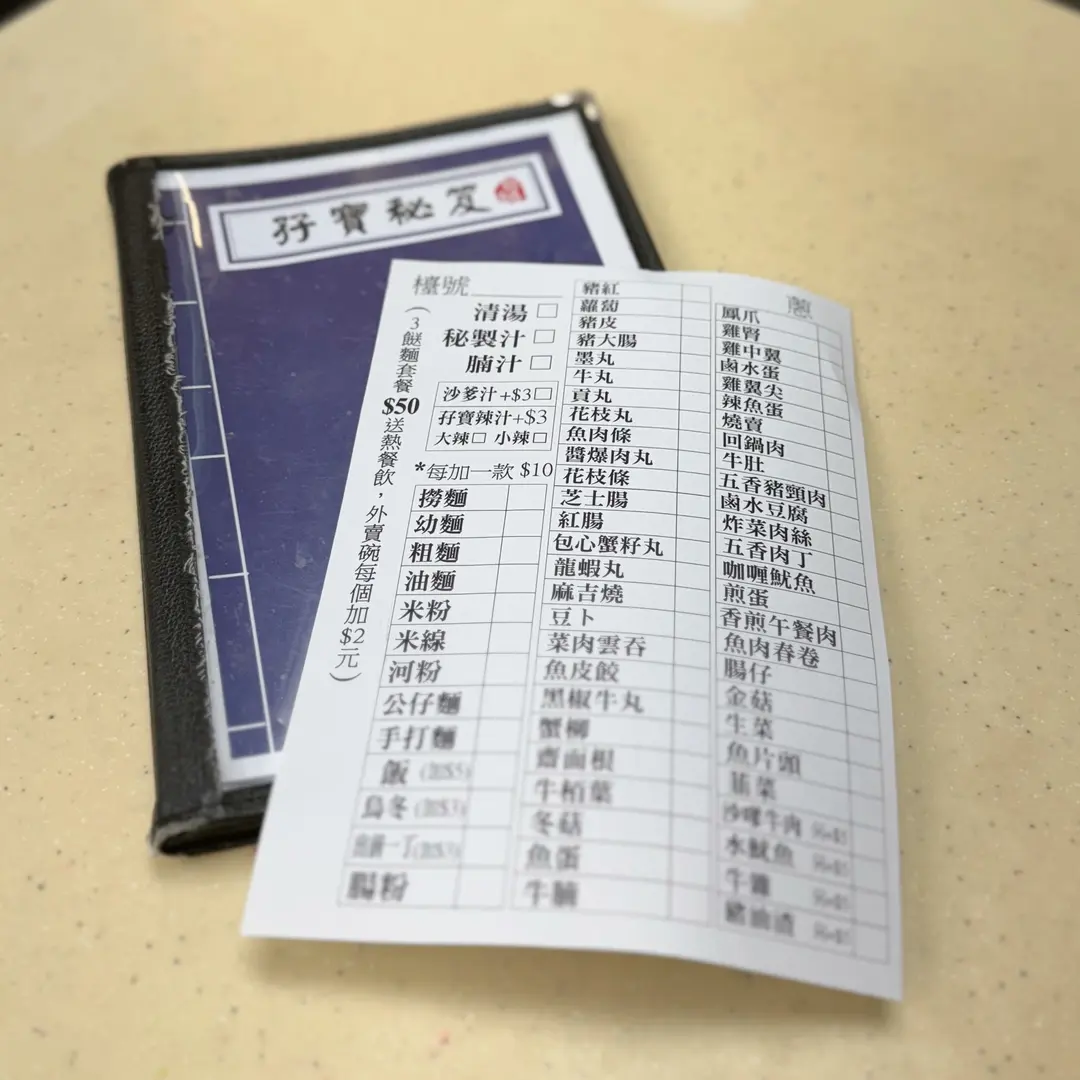 孖寶秘笈
檯號
清湯
秘製汁
腩汁
沙爹汁+$3
孖寶辣汁+$3
大辣 小辣
*每加一款 $10
(3餸麵套餐$50送熱餐飲，外賣碗每個加$2元)
撈麵
幼麵
粗麵
油麵
米粉
米線
河粉
公仔麵
手打麵
飯
烏冬
腸粉
豬紅
蘿蔔
豬皮
豬大腸
墨丸
牛丸
貢丸
花枝丸
魚肉條
醬爆肉丸
花枝條
芝士腸
紅腸
包心蟹籽丸
龍蝦丸
麻吉燒
豆卜
菜肉雲吞
魚皮餃
黑椒牛丸
蟹柳
齋面根
牛栢葉
冬菇
魚蛋
牛腩
蔥
鳳爪
雞腎
雞中翼
鹵水蛋
雞翼尖
辣魚蛋
燒賣
回鍋肉
牛肚
五香豬頸肉
鹵水豆腐
炸菜肉絲
五香肉丁
咖喱魷魚
煎蛋
香煎午餐肉
魚肉春卷
腸仔
金菇
生菜
魚片頭
韮菜
沙嗲牛肉
水魷魚
牛雜
豬油渣